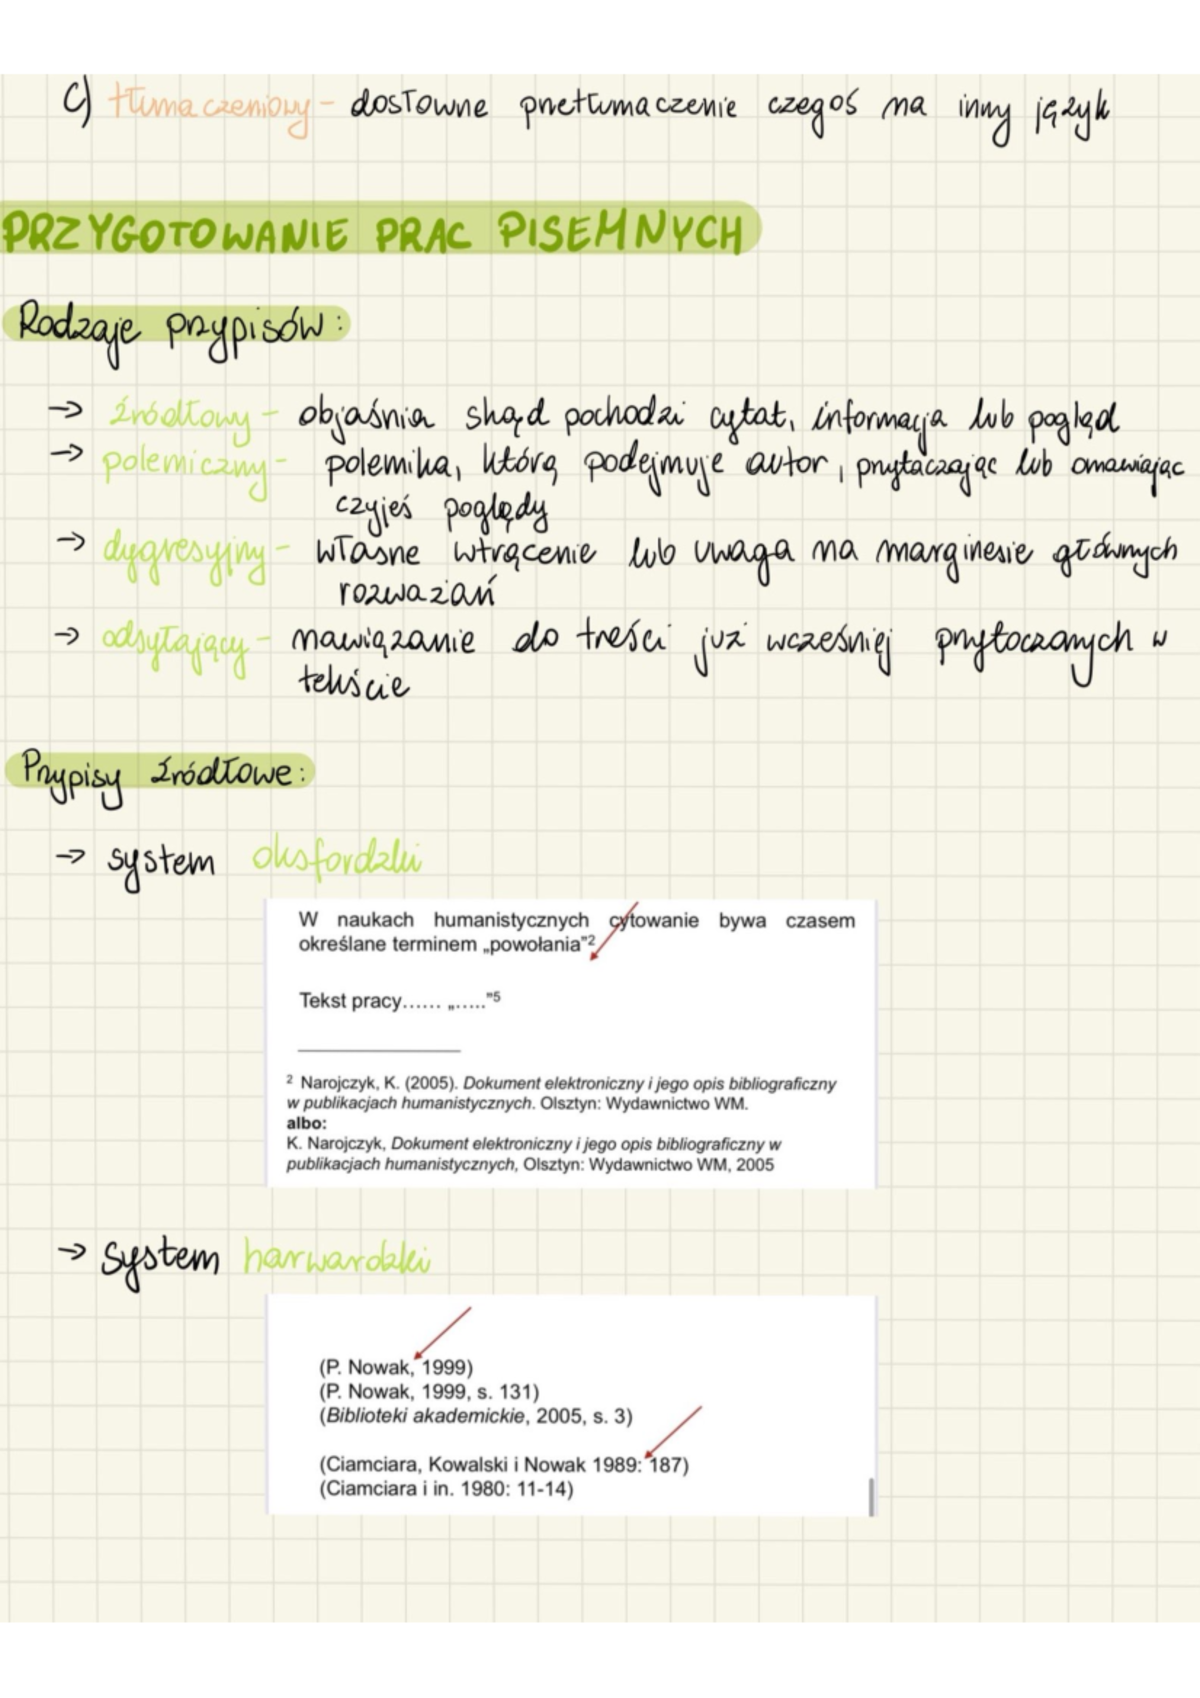 c) tłumaczeniowy - dosłowne przetłumaczenie czegoś na inny język
PRZYGOTOWANIE PRAC PISEMNYCH
Rodzaje przypisów:
→ źródłowy - objaśnia skąd pochodzi cytat, informacja lub pogląd
→ polemiczny - polemika, którą podejmuje autor, przytaczając lub omawiając
czyjeś poglądy
→ dygresyjny - własne wtrącenie lub uwaga na marginesie głównych
rozważań
→ odsyłający - nawiązanie do treści już wcześniej przytoczonych w
tekście
Przypisy źródłowe:
→ system oksfordzki
W naukach humanistycznych cytowanie bywa czasem
określane terminem „powołania”²
Tekst pracy...... „.....”⁵
² Narojczyk, K. (2005). Dokument elektroniczny i jego opis bibliograficzny
w publikacjach humanistycznych. Olsztyn: Wydawnictwo WM.
albo:
K. Narojczyk, Dokument elektroniczny i jego opis bibliograficzny w
publikacjach humanistycznych, Olsztyn: Wydawnictwo WM, 2005
→ system harwardzki
(P. Nowak, 1999)
(P. Nowak, 1999, s. 131)
(Biblioteki akademickie, 2005, s. 3)
(Ciamciara, Kowalski i Nowak 1989: 187)
(Ciamciara i in. 1980: 11-14)